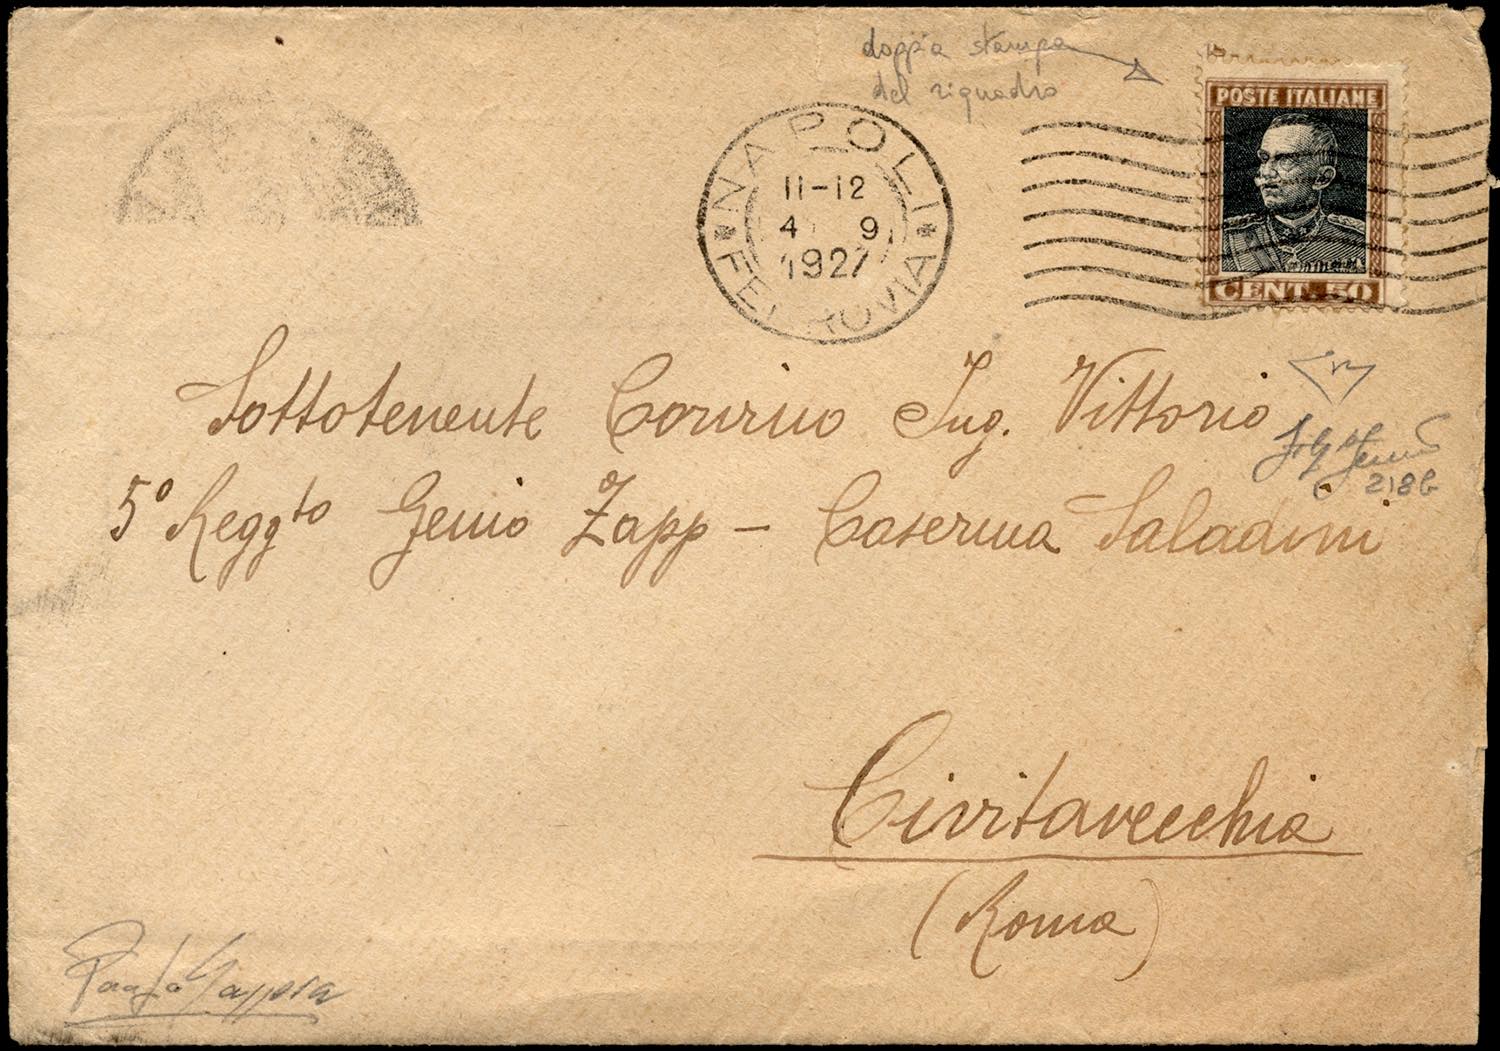 doppia stampa
del riquadro
POSTE ITALIANE
CENT. 50
NAPOLI
11-12
4 9
1927
FERROVIA
Sottotenente Corvino Ing. Vittorio
5° Reggto Genio Zapp - Caserma Saladini
218b
Civitavecchia
(Roma)